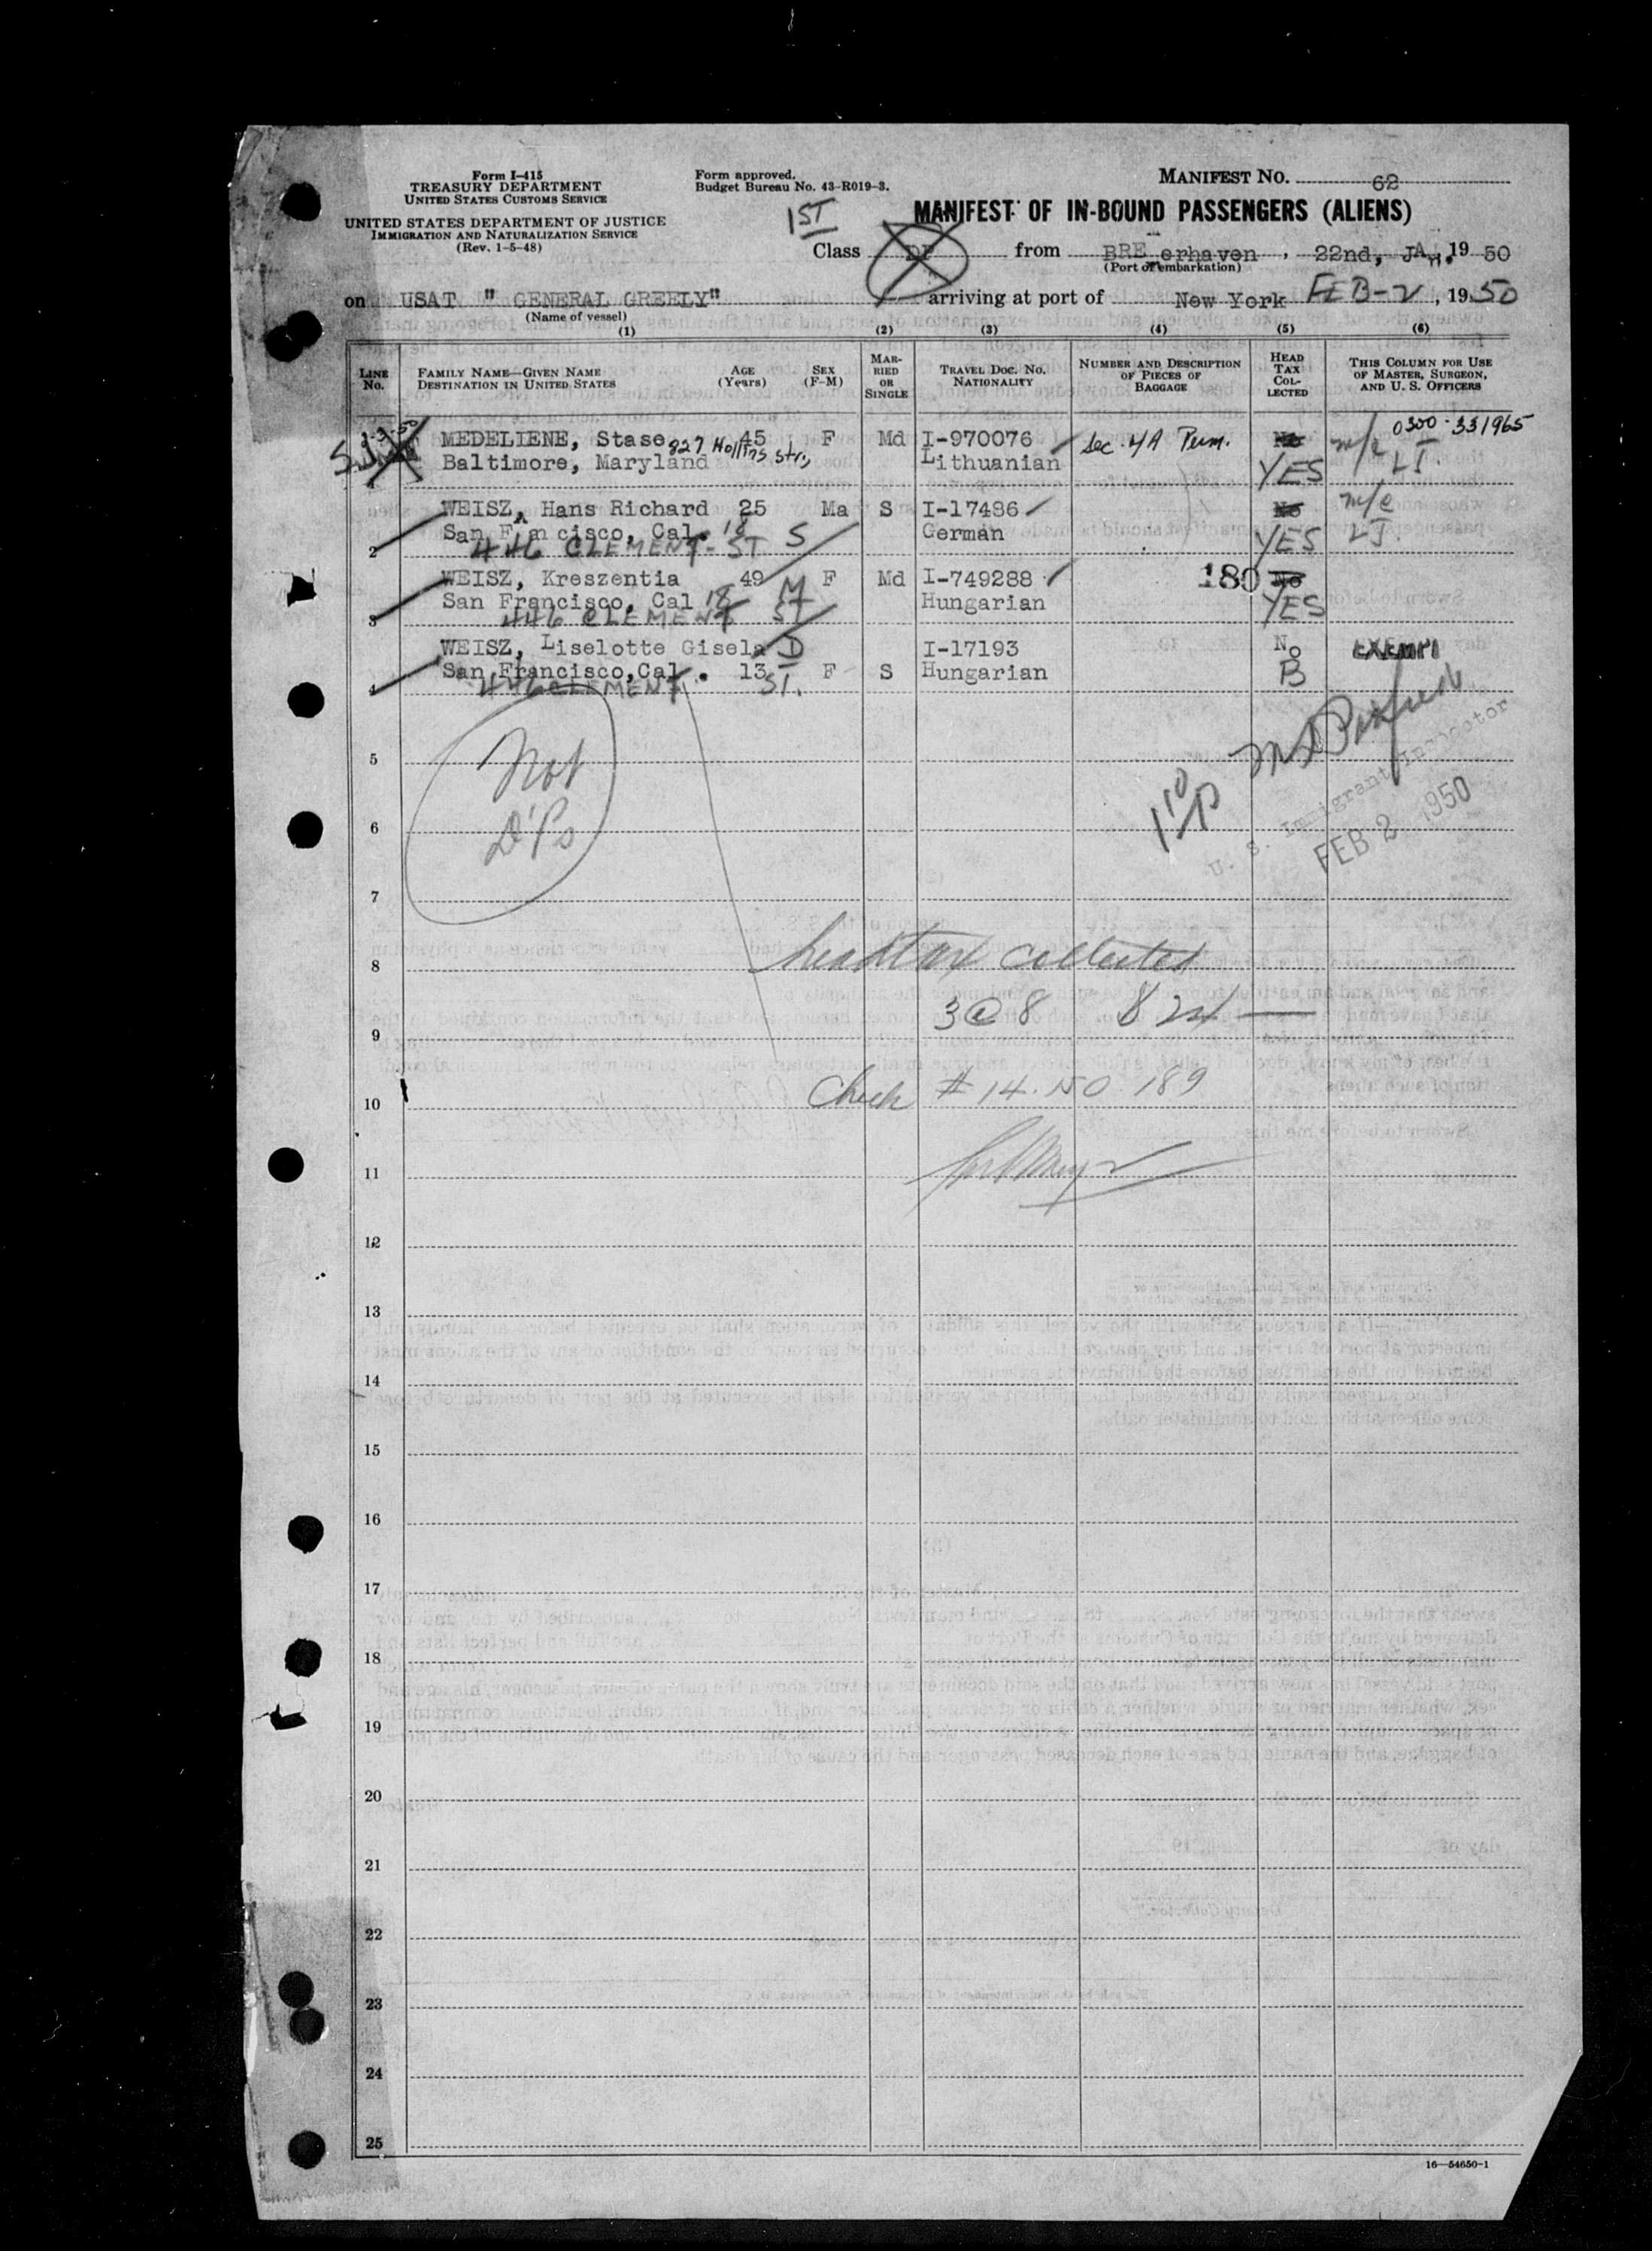 Form I-415
TREASURY DEPARTMENT
UNITED STATES CUSTOMS SERVICE
UNITED STATES DEPARTMENT OF JUSTICE
IMMIGRATION AND NATURALIZATION SERVICE
(Rev. 1-5-48)
Form approved.
Budget Bureau No. 43-R019-3.
MANIFEST NO. 62
MANIFEST OF IN-BOUND PASSENGERS (ALIENS)
1ST
Class DP from BRE erhaven, 22nd, JAn. 19 50
(Port of embarkation)
on USAT " GENERAL GREELY" arriving at port of New York FEB-2, 1950
(Name of vessel)
(1) (2) (3) (4) (5) (6)
LINE No.
FAMILY NAME—GIVEN NAME
DESTINATION IN UNITED STATES
AGE (Years)
SEX (F-M)
MARRIED OR SINGLE
TRAVEL DOC. NO. NATIONALITY
NUMBER AND DESCRIPTION OF PIECES OF BAGGAGE
HEAD TAX COLLECTED
THIS COLUMN FOR USE OF MASTER, SURGEON, AND U. S. OFFICERS
1 MEDELIENE, Stase 45 F Md I-970076 Sec. 4A Perm. No 0300-331965
827 Hollins Str,
Baltimore, Maryland Lithuanian YES
2 WEISZ, Hans Richard 25 Ma S I-17486 No m/c
San F an cisco, Cal. 18 S German YES
446 CLEMENT-ST
3 WEISZ, Kreszentia 49 F Md I-749288 180 No
San Francisco, Cal 18 M Hungarian YES
446 CLEMENT ST
4 WEISZ, Liselotte Gisela D I-17193 No EXEMPT
San Francisco, Cal. 13 F S Hungarian B
446 CLEMENT ST.
Not
D'Ps
5
6
U. S. Immigrant Inspector
FEB 2 1950
7
8 headtax collected
9 3 @ 8 $ 24 —
10 Check # 14.150.189
11
12
13
14
15
16
17
18
19
20
21
22
23
24
25
16—54650-1